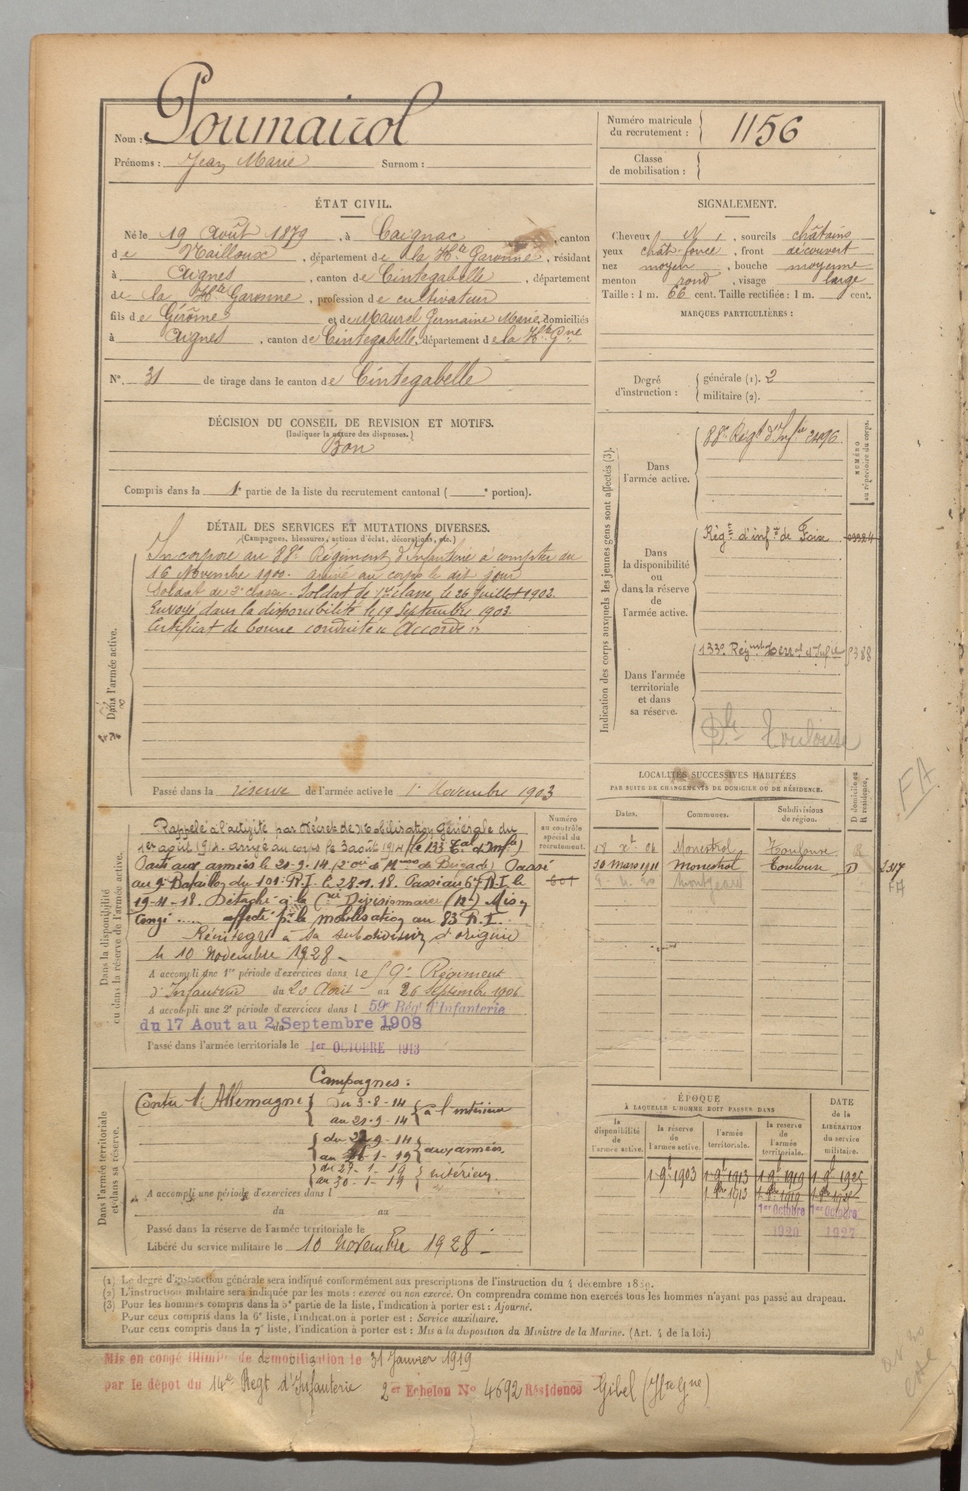 Nom : Poumairol
Prénoms : Jean Marie Surnom :
Numéro matricule du recrutement : 1156
Classe de mobilisation :
ÉTAT CIVIL.
Né le 19 Août 1879, à Caignac, canton
de Nailloux, département de la Hte Garonne, résidant
à Aignes, canton de Cintegabelle, département
de la Hte Garonne, profession de cultivateur
fils de Gérôme et de Maurel Germaine Marie, domiciliés
à Aignes, canton de Cintegabelle, département de la Hte Gne
N° 31 de tirage dans le canton de Cintegabelle
SIGNALEMENT.
Cheveux N, sourcils châtains
yeux chât. foncé, front découvert
nez moyen, bouche moyenne
menton rond, visage large
Taille : 1 m. 66 cent. Taille rectifiée : 1 m. cent.
MARQUES PARTICULIÈRES :
Degré d'instruction : générale (1). 2
militaire (2).
DÉCISION DU CONSEIL DE REVISION ET MOTIFS.
(Indiquer la nature des dispenses.)
Bon
Compris dans la 1e partie de la liste du recrutement cantonal ( e portion).
DÉTAIL DES SERVICES ET MUTATIONS DIVERSES.
(Campagnes, blessures, actions d'éclat, décorations, etc.)
Dans l'armée active.
Incorporé au 88e Régiment d'Infanterie à compter du
16 Novembre 1900. arrivé au corps le dit jour
Soldat de 2e classe. Soldat de 1ère classe, le 26 Juillet 1902.
Envoyé dans la disponibilité le 19 Septembre 1903.
Certificat de bonne conduite "Accordé"
Passé dans la réserve de l'armée active le 1er Novembre 1903
Indication des corps auxquels les jeunes gens sont affectés (3).
NUMÉRO au répertoire du corps.
Dans l'armée active.
88e Régt d'Infie
Dans la disponibilité ou dans la réserve de l'armée active.
Régt d'infie de Foix
Dans l'armée territoriale et dans sa réserve.
133e Régiment terral d'Infie
Toulouse
LOCALITÉS SUCCESSIVES HABITÉES
PAR SUITE DE CHANGEMENTS DE DOMICILE OU DE RÉSIDENCE.
Dates. Communes. Subdivisions de région. D domicile ou R résidence.
18 Xbre 06 Monestrol Toulouse R
30 Mars 1911 Monestrol Toulouse D
FA
Dans la disponibilité ou dans la réserve de l'armée active.
Numéro au contrôle spécial du recrutement.
Rappelé à l'activité par Décret de Mobilisation Générale du
1er août 1914. arrivé au corps le 3 août 1914 (le 133 Tal d'Infie)
Parti aux armées le 20-9-14 Passé
au 9e Bataillon du 101e R.I. le 28-1-18. Passé au 67 R.I. le
19-4-18. Détaché à la Divisionnaire Mis en
congé affecté pr la mobilisation au 83e R.I.
Réintégré à sa subdivision d'origine
le 10 Novembre 1928.
A accompli une 1re période d'exercices dans le 59e Régiment
d'Infanterie du 20 Août au 26 Septembre 1906
A accompli une 2e période d'exercices dans l 59e Rég. d'Infanterie
du 17 Aout au 2 Septembre 1908
Passé dans l'armée territoriale le 1er OCTOBRE 1913
Dans l'armée territoriale et dans sa réserve.
Campagnes :
Contre l'Allemagne du 3-8-14 au 20-9-14 à l'intérieur
aux armées
du 27-1-19 au 30-1-19 intérieur.
A accompli une période d'exercices dans l
du au
Passé dans la réserve de l'armée territoriale le
Libéré du service militaire le 10 Novembre 1928
ÉPOQUE
À LAQUELLE L'HOMME DOIT PASSER DANS
la disponibilité de l'armée active. la réserve de l'armée active. l'armée territoriale. la réserve de l'armée territoriale.
DATE de la LIBÉRATION du service militaire.
1 9bre 1903 1 9bre 1913 1 9bre 1919 1 9bre 1925
1er Octobre 1920 1er Octobre 1927
(1) Le degré d'instruction générale sera indiqué conformément aux prescriptions de l'instruction du 4 décembre 1889.
(2) L'instruction militaire sera indiquée par les mots : exercé ou non exercé. On comprendra comme non exercés tous les hommes n'ayant pas passé au drapeau.
(3) Pour les hommes compris dans la 5e partie de la liste, l'indication à porter est : Ajourné.
Pour ceux compris dans la 6e liste, l'indication à porter est : Service auxiliaire.
Pour ceux compris dans la 7e liste, l'indication à porter est : Mis à la disposition du Ministre de la Marine. (Art. 4 de la loi.)
Mis en congé illimité de démobilisation le 31 Janvier 1919
par le dépôt du 14e Regt d'Infanterie 2er Echelon No 4692 Résidence Gibel (Hte Gne)